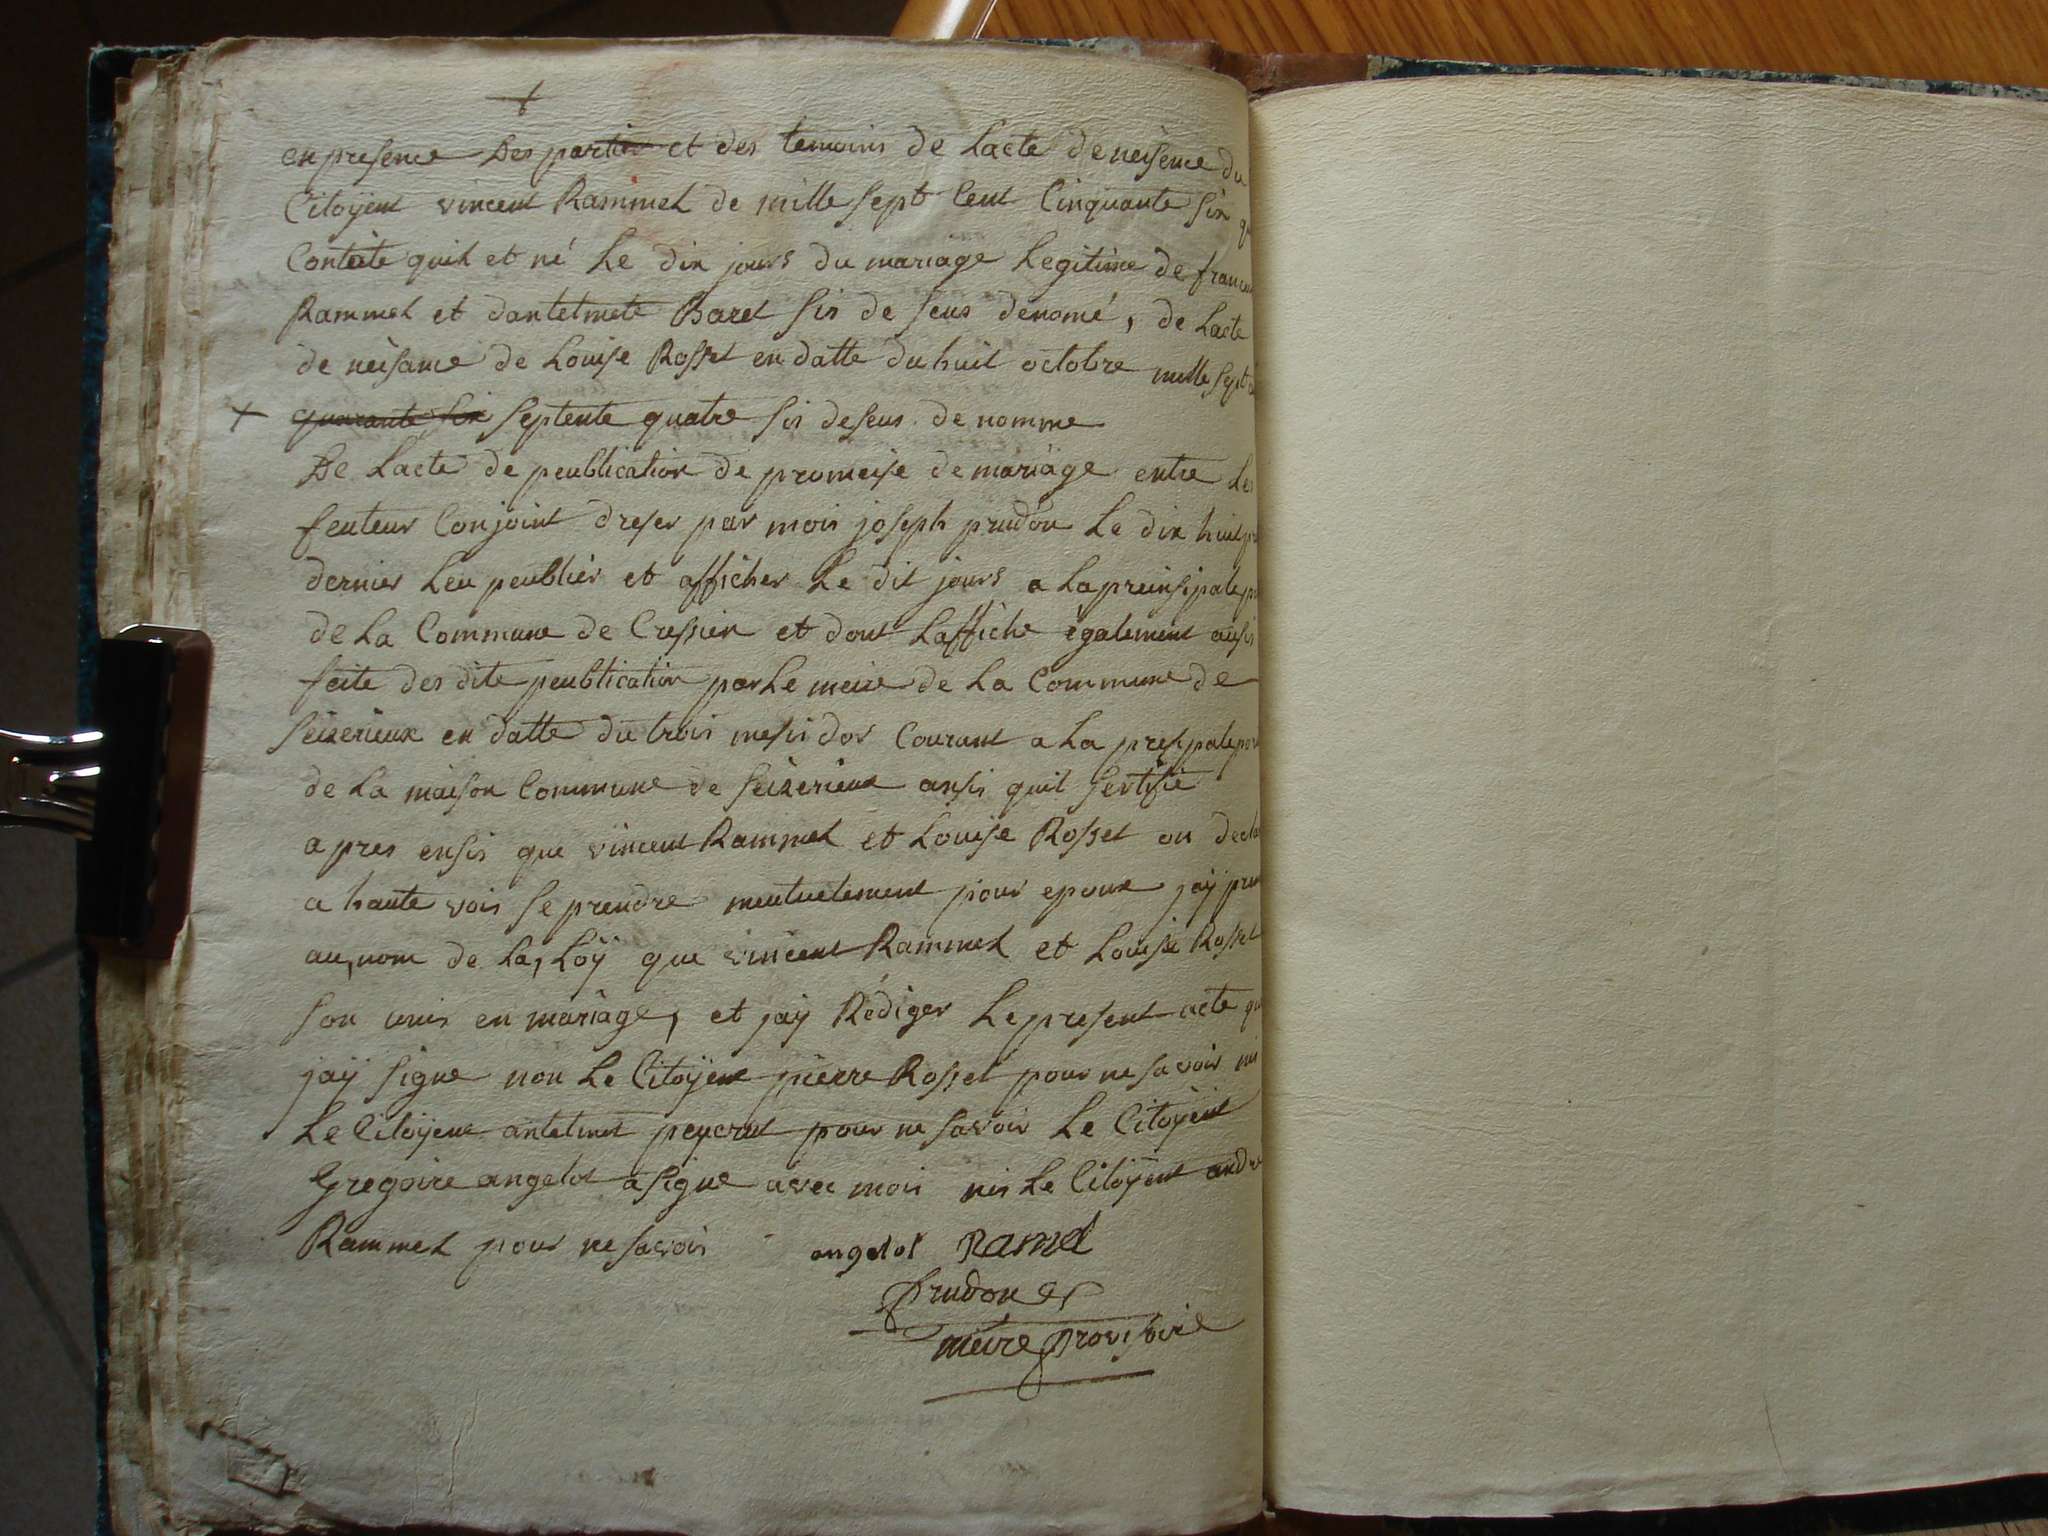 en presence des partie et des temoins de Lacte de neisence du
Citoÿent vincent Rammel de mille sept Cent Cinquante six
Contéte quil et né Le dix jours du mariage Legitime de
Rammel et dantelmete Baret sis de seus denomé, de Lacte
de neisance de Louise Rosset en datte du huit octobre mille sept
+ quarante six septente quatre sis deseus de nomme
De Lacte de peublication de promeise de mariage entre Les
feuteur Conjoint dreser par mois joseph prudon Le dix huit
dernier Leu peublier et afficher Le dit jours a La preinsipale
de La Commune de Cressieu et dont Laffiche également ausis
feite des dite peublication par Le meire de La Commune de
Seizerieux en datte du trois mesidor Courant a La
de La maison Commune de Seizerieux ansis quil sertifie
apres ensis que vincent Rammel et Louise Rosset on
a haute vois se prendre meutuelement pour epoux jaÿ
au nom de La, Loÿ que vincent Rammel et Louise Rosset
son unis en mariage, et jaÿ Rédiger Le present acte
jaÿ signe non Le Citoÿent pierre Rosset pour ne savoir nis
Le Citoÿent antelmet peycrut pour ne savoir Le Citoÿent
Gregoire angelot a signe avec mois nis Le Citoÿent andre
Rammel pour ne savoir angelot Ramel
Prudon
meire provisoire